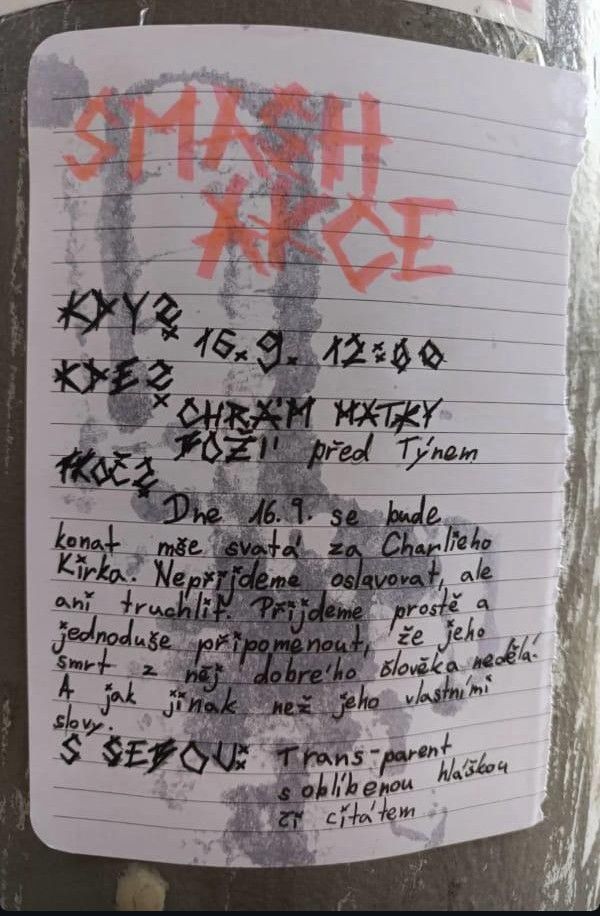 SMASH
AKCE
KDY?
16. 9. 12:00
KDE?
CHRÁM MATKY
BOŽÍ před Týnem
PROČ?
Dne 16.9. se bude
konat mše svatá za Charlieho
Kirka. Nepřijdeme oslavovat, ale
ani truchlit. Přijdeme prostě a
jednoduše připomenout, že jeho
smrt z něj dobrého člověka nedělá.
A jak jinak než jeho vlastními
slovy.
S SEBOU: Trans-parent
s oblíbenou hláškou
či citátem